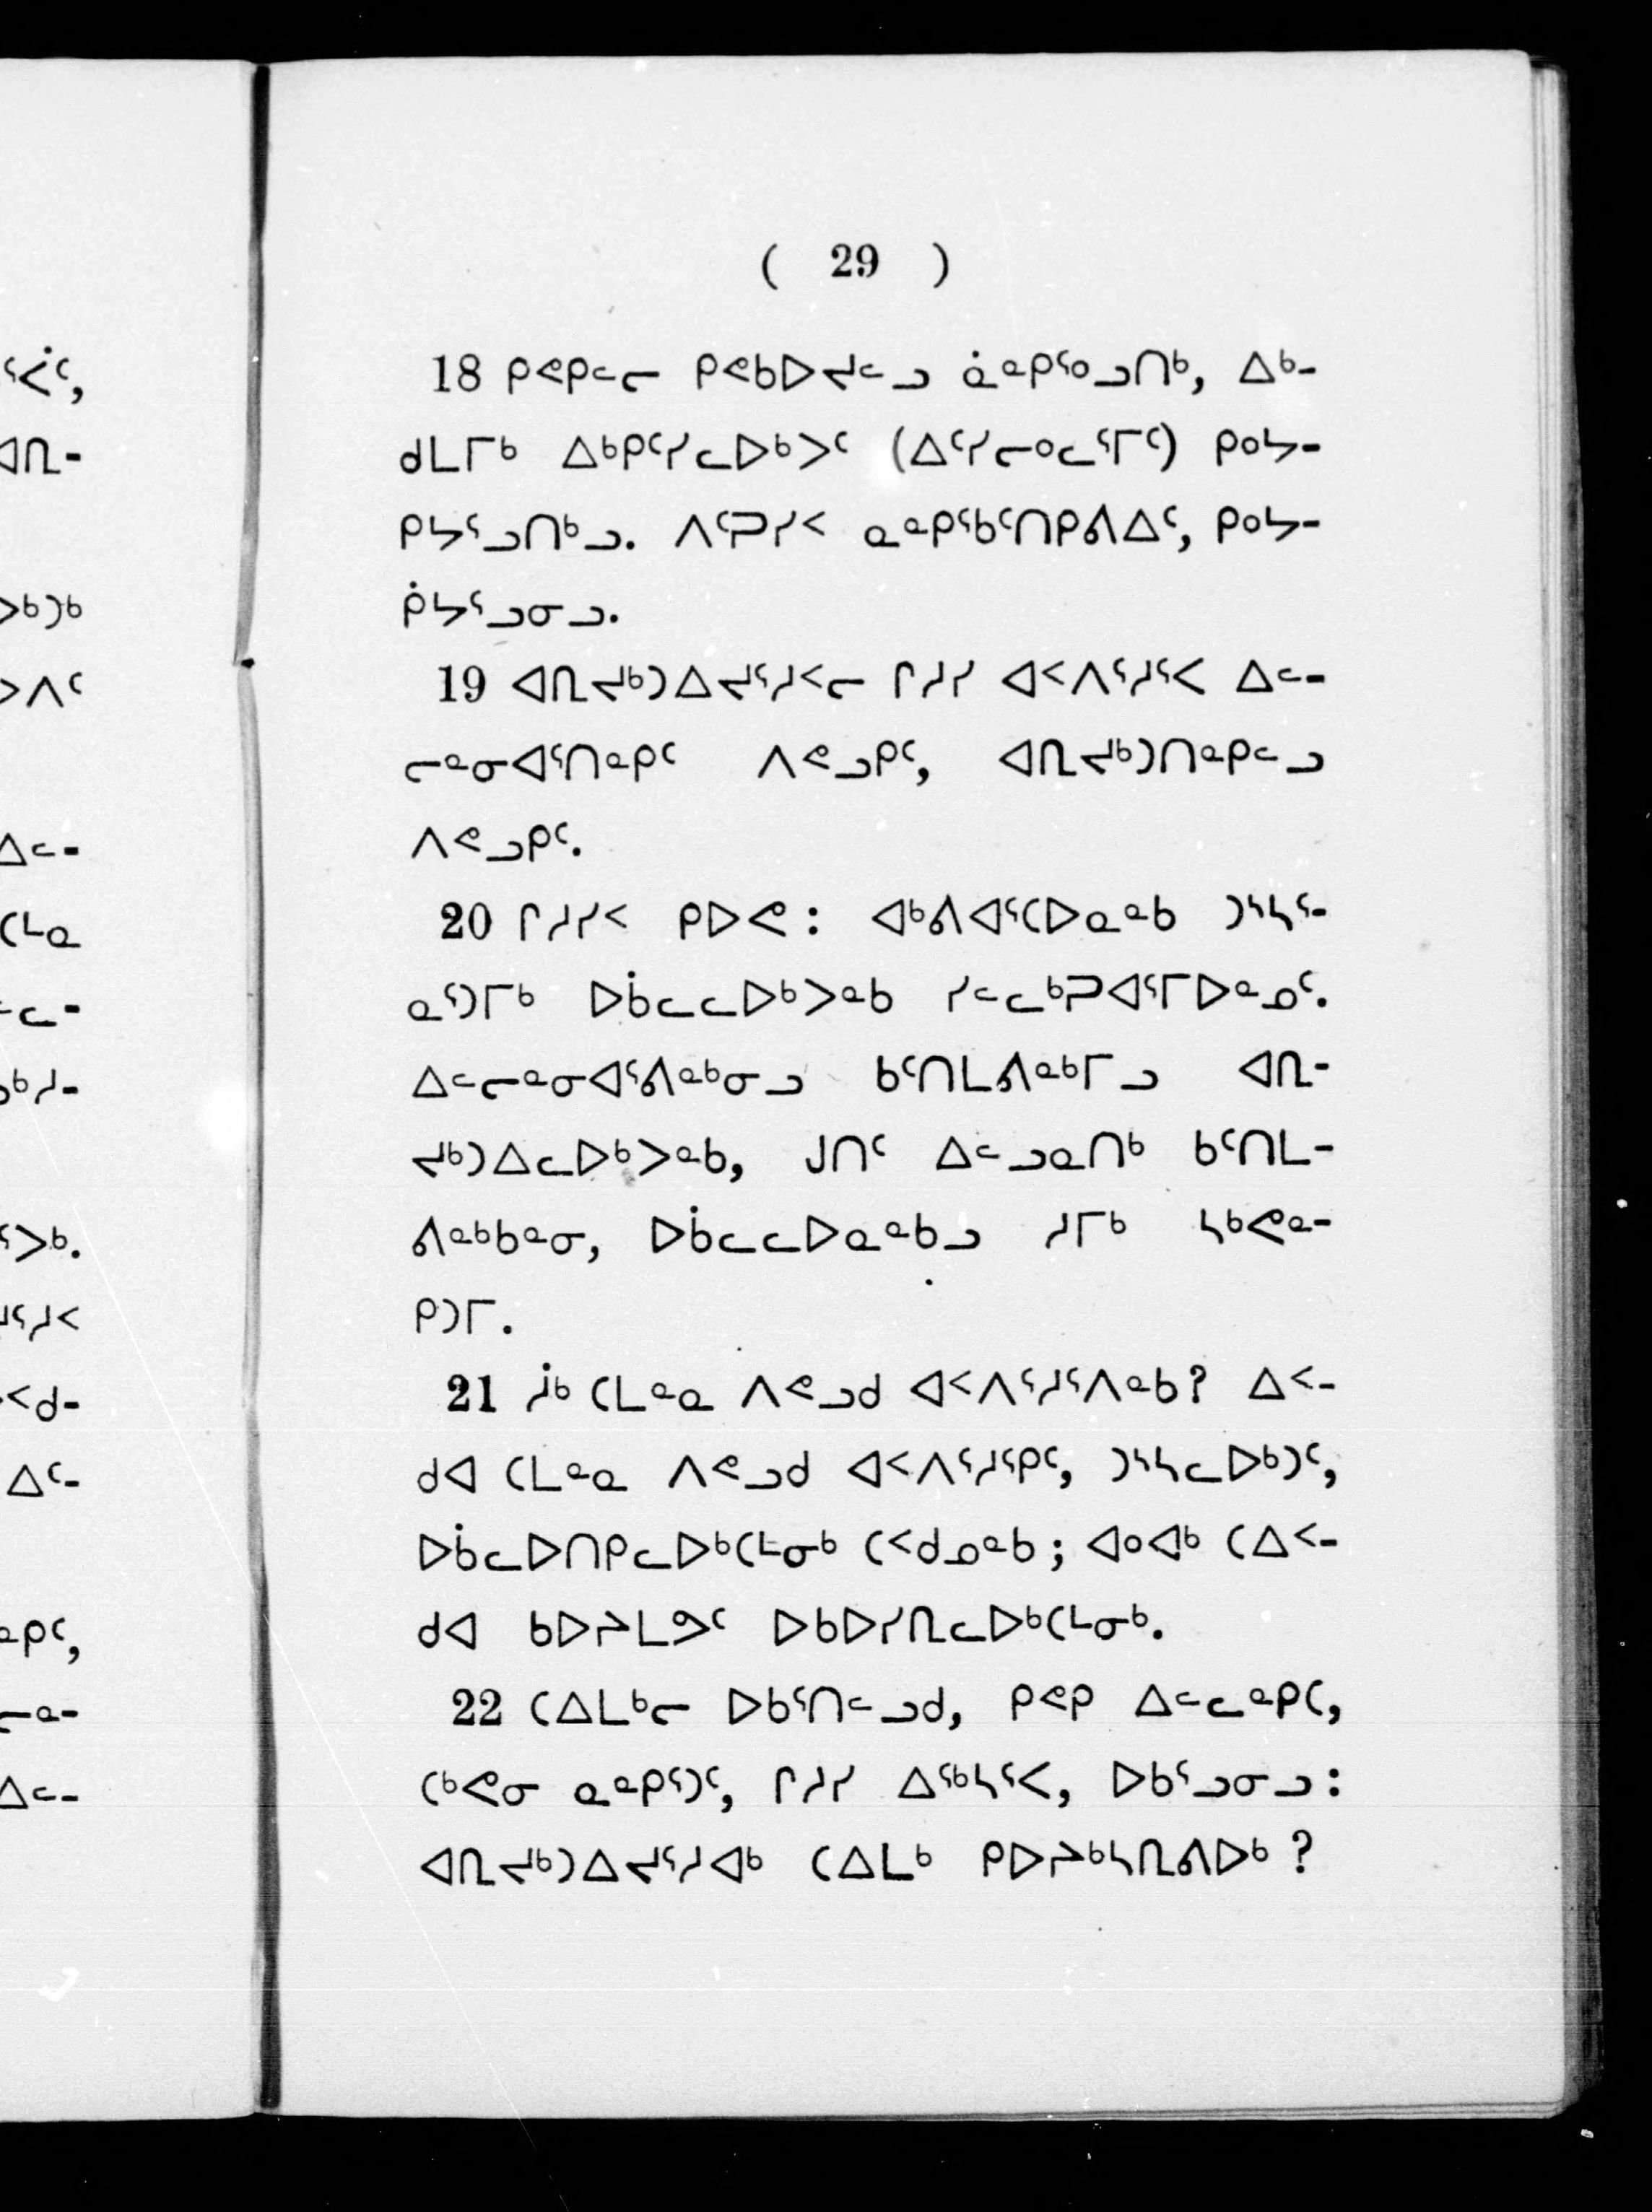 ( 29 )
18 ᑭᕙᑭᓪᓕ ᑭᕙᑲᐅᔪᓪᓗ ᓈᓐᑭᕐᓄᓗᑎᒃ, ᐃᒃ-
ᑯᒪᒥᒃ ᐃᒃᑭᑦᓯᓚᐅᒃᐳᑦ (ᐃᑦᓯᓕᓄᓚᕐᒥᑦ) ᑭᓄᔭ-
ᑭᔭᕐᓗᑎᒃᓗ. ᐱᑦᑐᓯᑉ ᓇᓐᑭᕐᑲᑦᑎᑭᕕᐃᑦ, ᑭᓄᔭ-
ᑮᔭᕐᓗᓂᓗ.
19 ᐊᒋᔪᒃᑐᐃᔪᕐᓱᑉᓕ ᒋᓱᓯ ᐊᑉᐱᕐᓱᕐᐸ ᐃᓪ-
ᓕᓐᓂᐊᕐᑎᓐᑭᑦ ᐱᕙᓗᑭᑦ, ᐊᒋᔪᒃᑐᑎᓐᑭᓪᓗ
ᐱᕙᓗᑭᑦ.
20 ᒋᓱᓯᑉ ᑭᐅᕙ: ᐊᒃᕕᐊᕐᑕᐅᓇᓐᑲ ᑐᓴᓴᕐ-
ᓇᕐᑐᒥᒃ ᐅᑳᓚᓚᐅᒃᐳᓐᑲ ᓯᓪᓚᒃᑐᐊᕐᒥᐅᓐᓄᑦ.
ᐃᓪᓕᓐᓂᐊᕐᕕᓐᒃᓂᓗ ᑲᑦᑎᒪᕕᓐᒃᒥᓗ ᐊᒋ-
ᔪᒃᑐᐃᓚᐅᒃᐳᓐᑲ, ᒍᑎᑦ ᐃᓪᓗᓇᑎᒃ ᑲᑦᑎᒪ-
ᕕᓐᒃᑲᓐᓂ, ᐅᑳᓚᓚᐅᓇᓐᑲᓗ ᓱᒥᒃ ᓴᒃᕙᓇ-
ᑭᑐᒥ.
21 ᓲᒃ ᑕᒪᓐᓇ ᐱᕙᓗᑯ ᐊᑉᐱᕐᓱᕐᐱᓐᑲ? ᐃᑉ-
ᑯᐊ ᑕᒪᓐᓇ ᐱᕙᓗᑯ ᐊᑉᐱᕐᓱᕐᑭᑦ, ᑐᔅᓴᓚᐅᒃᑐᑦ,
ᐅᑳᓚᐅᑎᑭᓚᐅᒃᑕᒻᓂᒃ ᑕᑉᑯᓄᓐᑲ; ᐊᓄᐊᒃ ᑕᐃᑉ-
ᑯᐊ ᑲᐅᔨᒪᕗᑦ ᐅᑲᐅᓯᕆᓚᐅᒃᑕᒻᓂᒃ.
22 ᑕᐃᒪᒃᓕ ᐅᑲᕐᑎᓪᓗᑯ, ᑭᕙᑭ ᐃᓪᓚᓐᑭᑕ,
ᑕᒃᕙᓂ ᓇᓐᑭᕐᑐᑦ, ᒋᓱᓯ ᐃᕐᒃᓴᕐᐸ, ᐅᑲᕐᓗᓂᓗ:
ᐊᒋᔪᒃᑐᐃᔪᕐᓱᐊᒃ ᑕᐃᒪᒃ ᑭᐅᔨᒃᓴᕆᕕᐅᒃ?